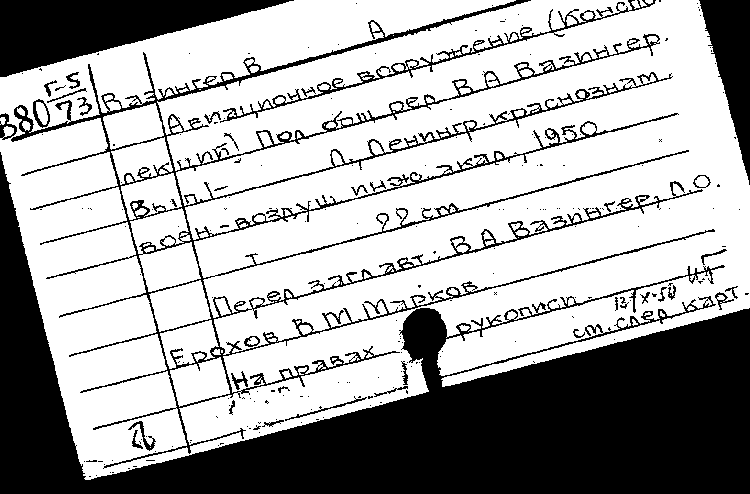 В80 Г-5/73
Вазингер, В А
Авиационное вооружение (Конспе
лекций) Под общ ред В А Вазингер.
Вып. 1- Л., Ленингр. краснознам.
воен.-воздуш. инж. акад., 1950.
т 22 см
Перед загл авт.: В А Вазингер, Л.О.
Ерохов, В М Марков
На правах рукописи.
см. след. карт.